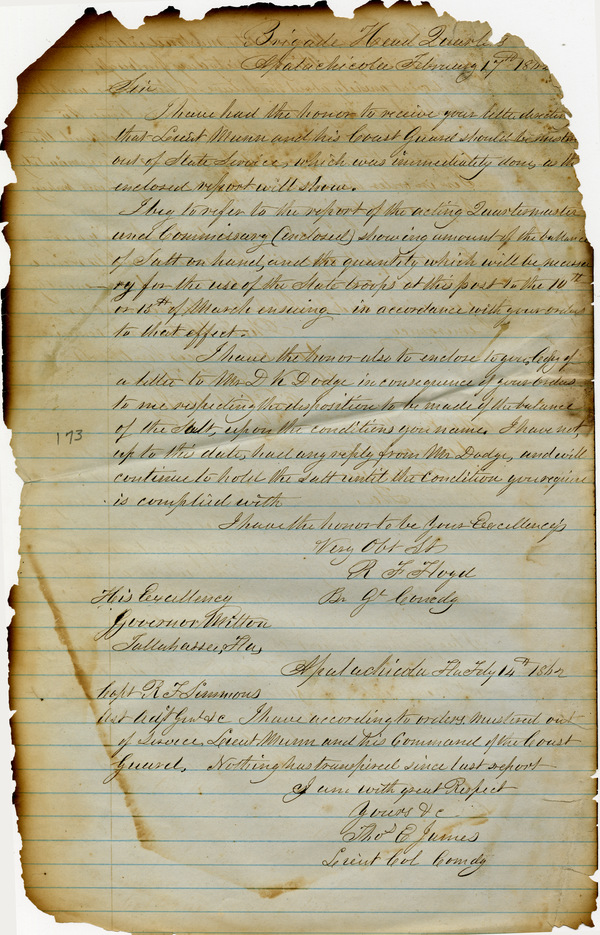 Brigade Head Quarters
Apalachicola February 17th 1862
Sir
I have had the honor to receive your letter directing
that Lieut Munn and his Coast Guard should be muster
out of State Service, which was immediately done, as the
enclosed report will show.
I beg to refer to the report of the acting Quartermaster
and Commissary (enclosed) showing amount of the balance
of Salt on hand, and the quantity which will be necessa
ry for the use of the State troops at this post to the 10th
or 15th of March ensuing in accordance with your orders
to that effect.
I have the honor also to enclose to you, Copy of
a letter to Mr D K Dodge in consequence of your Orders
to me respecting the disposition to be made of the balance
of the Salt, upon the conditions you name. I have not,
up to this date, had any reply from Mr. Dodge, and will
continue to hold the Salt until the condition you require
is complied with
173
I have the honor to be Your Excellency's
Very Obt St
R F Floyd
Br Gl Comdg
His Excellency
Governor Milton
Tallahassee, Fla,
Apalachicola Fla Feby 14th 1862
Capt R F Simmons
Ast Adjt Genl &c I have according to orders, mustered out
of Service, Lieut Munn and his Command of the Coast
Guard, Nothing has transpired since last report
I am with great Respect
Yours &c
Thos E James
Lieut Col Comdg